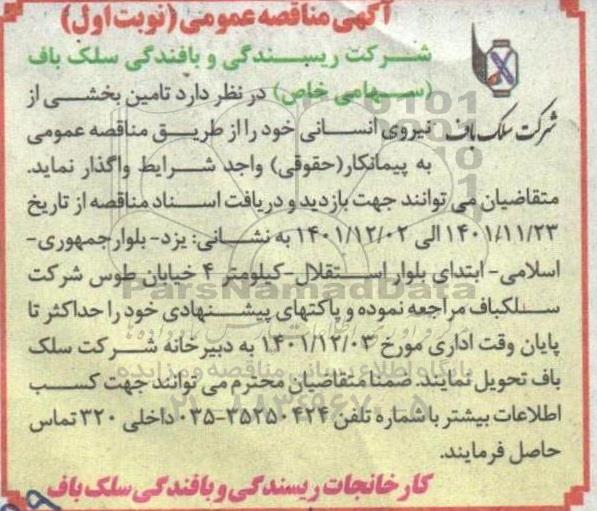 آگهی مناقصه عمومی (نوبت اول)
شرکت ریسندگی و بافندگی سلک باف
(سهامی خاص) در نظر دارد تامین بخشی از
نیروی انسانی خود را از طریق مناقصه عمومی
به پیمانکار(حقوقی) واجد شرایط واگذار نماید.
شرکت سلک باف
متقاضیان می توانند جهت بازدید و دریافت اسناد مناقصه از تاریخ
۱۴۰۱/۱۱/۲۳ الی ۱۴۰۱/۱۲/۰۲ به نشانی: یزد- بلوار جمهوری-
اسلامی- ابتدای بلوار استقلال-کیلومتر ۴ خیابان طوس شرکت
سلکباف مراجعه نموده و پاکتهای پیشنهادی خود را حداکثر تا
پایان وقت اداری مورخ ۱۴۰۱/۱۲/۰۳ به دبیرخانه شرکت سلک
باف تحویل نمایند. ضمنا متقاضیان محترم می توانند جهت کسب
اطلاعات بیشتر با شماره تلفن ۳۵۲۵۰۴۲۴-۰۳۵ داخلی ۳۲۰ تماس
حاصل فرمایند.
کارخانجات ریسندگی و بافندگی سلک باف
ParsNamadData
پایگاه اطلاع رسانی مناقصه و مزایده